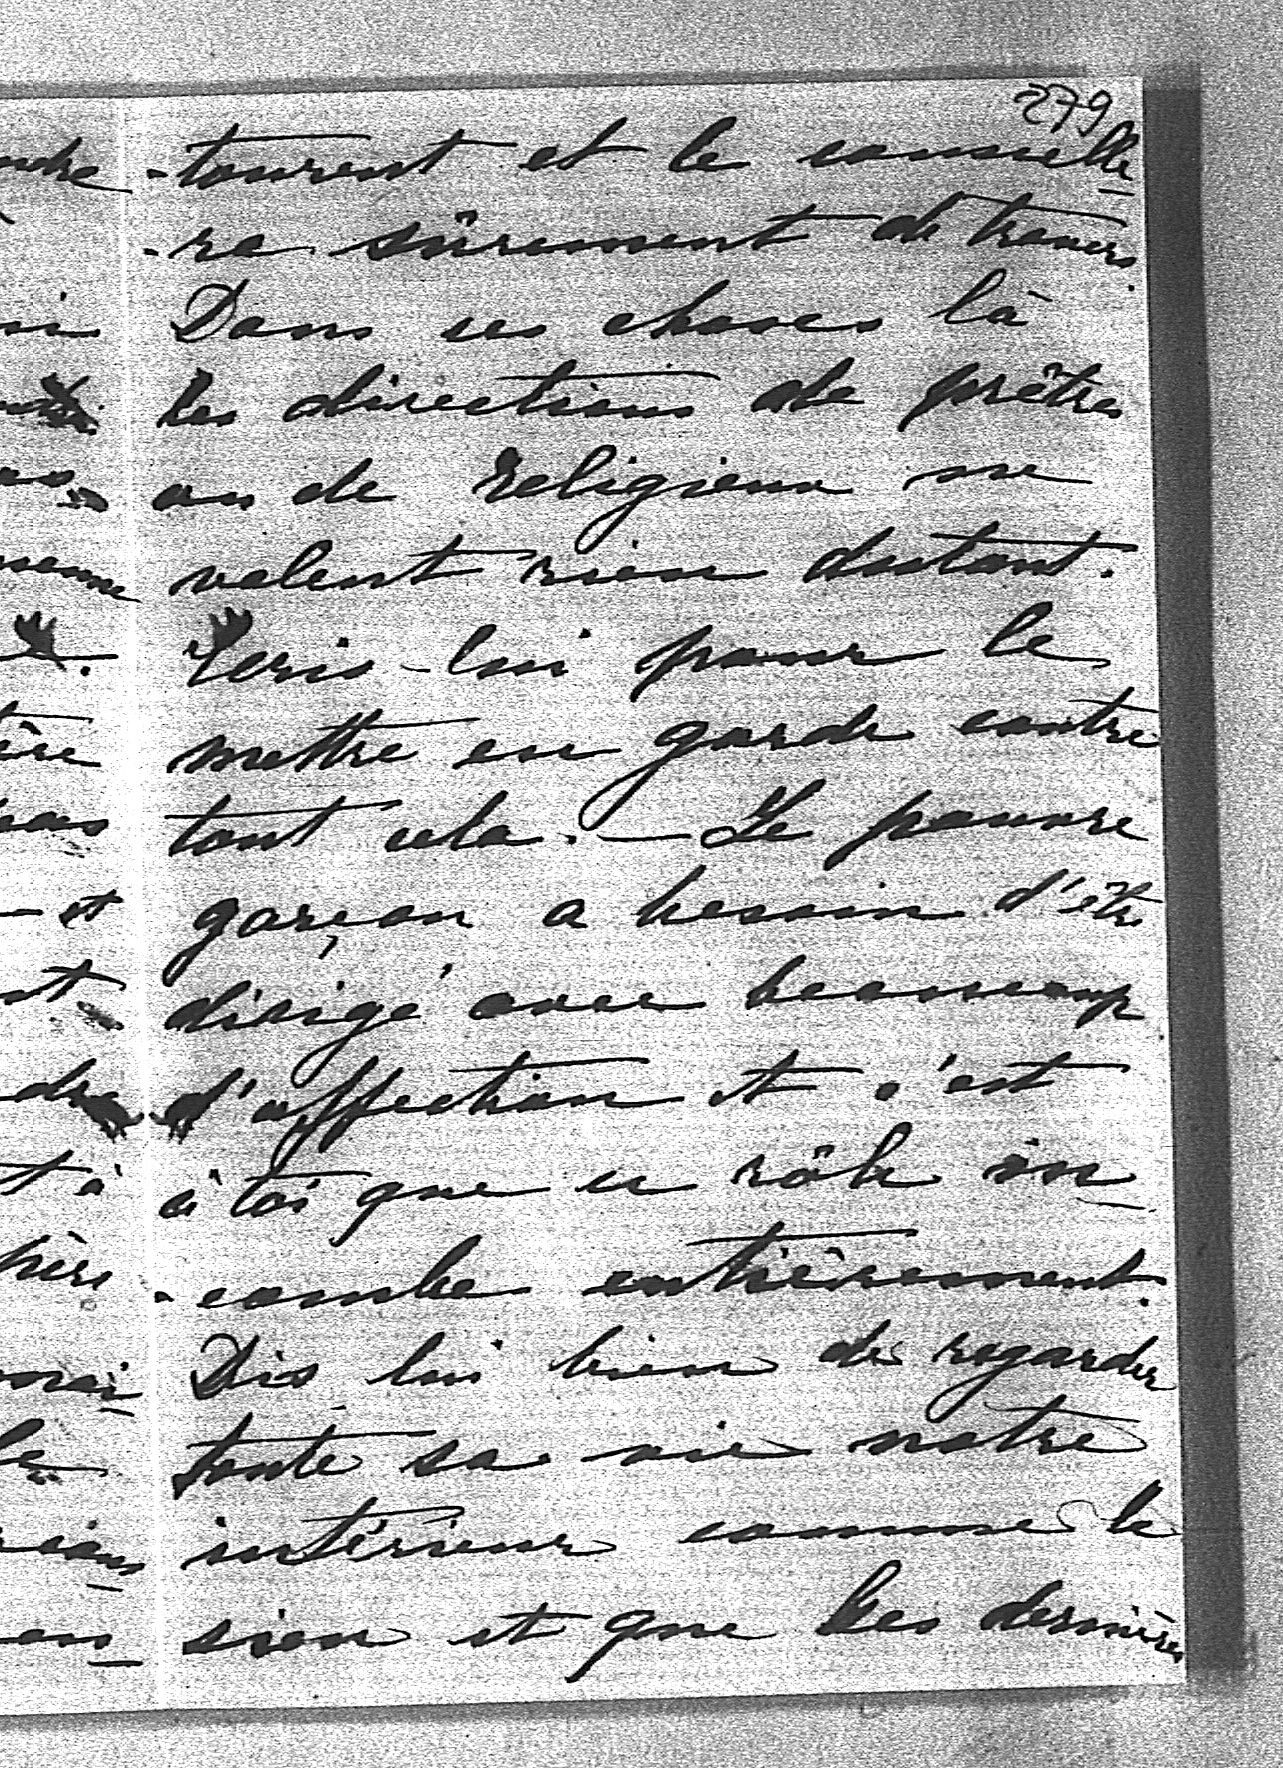 279
-tourent et le conseille
-ra sûrement de travers.
Dans ces choses là
les directions de prêtres
ou de religieux ne
valent rien
Ecris-lui pour le
mettre en garde contre
tout cela. — Le pauvre
garçon a besoin d'être
dirigé avec beaucoup
d'affection et c'est
à toi que ce rôle in-
-combe entièrement.
Dis lui bien de regarder
toute sa vie notre
intérieur comme le
sien et que les dernières